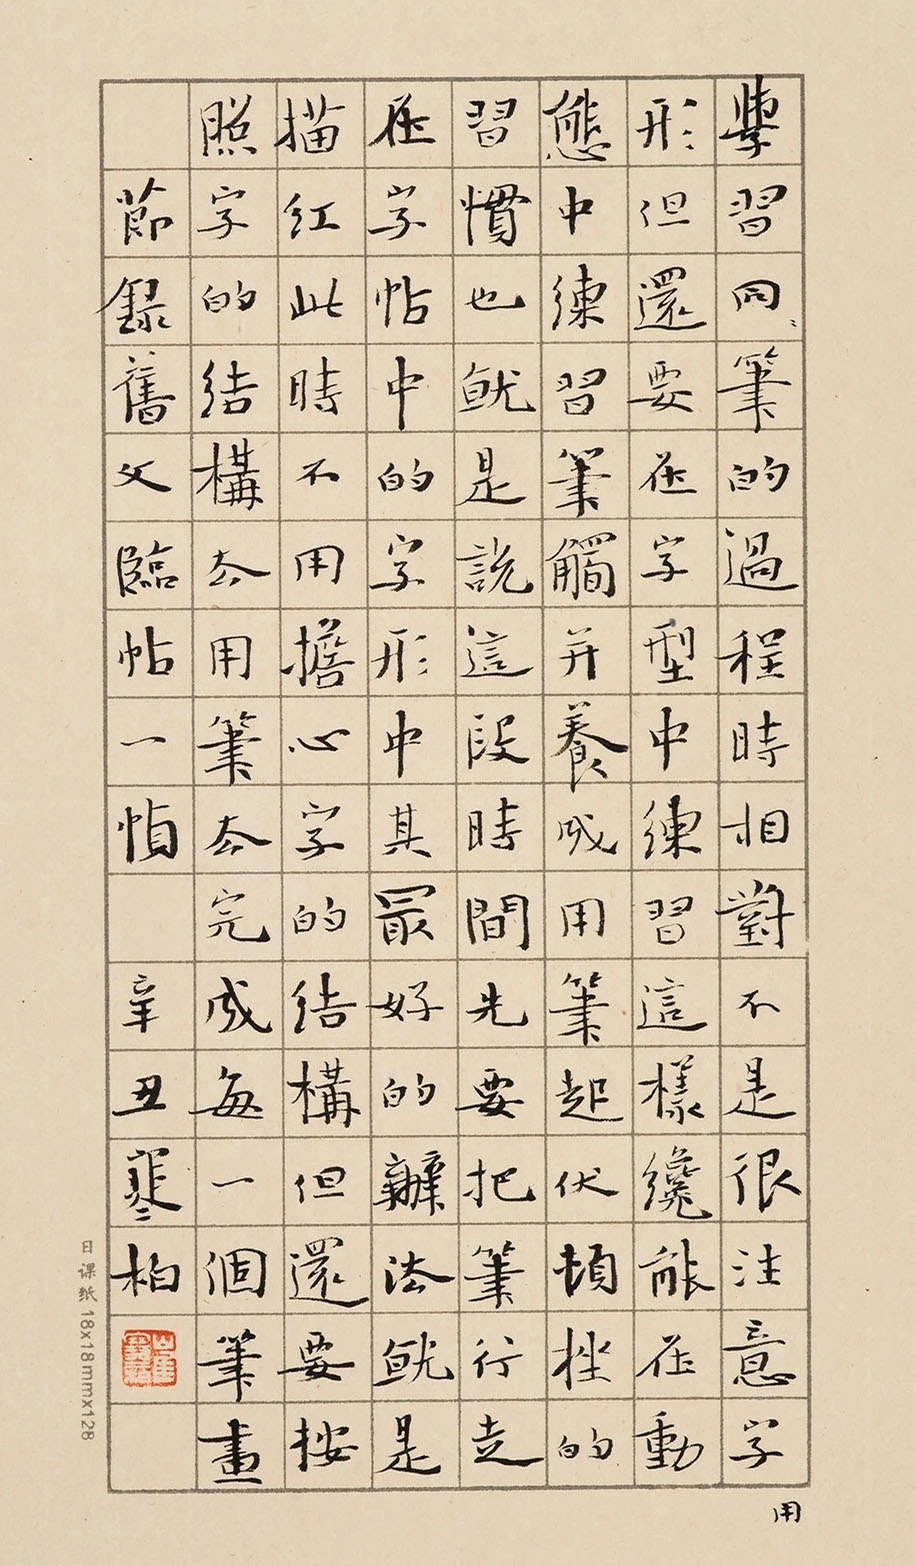 學習同筆的過程時相對不是很注意字
形但還要在字型中練習這樣纔能在動
態中練習筆觸并養成用筆起伏頓挫的
習慣也就是說這段時間先要把筆行走
在字帖中的字形中其最好的辦法就是
描紅此時不用擔心字的結構但還要按
照字的結構去用筆去完成每一個筆畫
節錄舊文臨帖一幀 辛丑寒柏
崔寒柏
用
日课纸 18x18mmx128